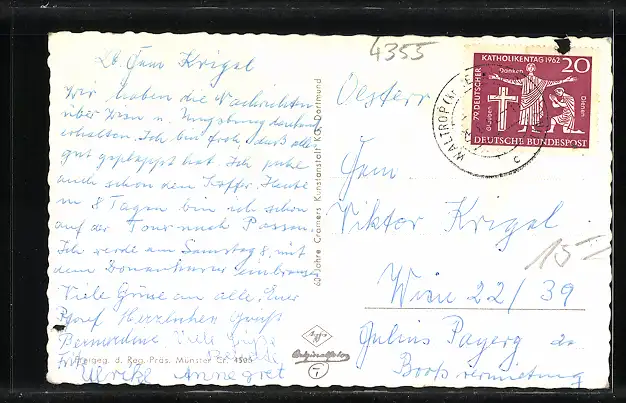 Lb. Fam Krigel
Wir haben die Nachrichten
über Wien u. Umgebung dankend
erhalten. Ich bin froh, daß alles
gut geklappt hat. Ich packe
auch schon den Koffer. Heute
in 8 Tagen bin ich schon
auf der Tour nach Passau.
Ich werde am Samstag 8. mit
dem Donaukurier
Viele Grüße an alle, Euer
Josef Herzlichen Gruß
Bernardine Viele Grüße
Freigeg. d. Reg. Präs. Münster Nr. 4595
Ulrike Annegret
60 Jahre Cramers Kunstanstalt KG, Dortmund
Agfa
Originalfoto
4355
79. DEUTSCHER KATHOLIKENTAG 1962
20
Danken
Glauben
Dienen
DEUTSCHE BUNDESPOST
WALTROP
c
Österr
Fam.
Viktor Krigel
15
Wien 22/39
Julius Payerg
Bootsvermietung